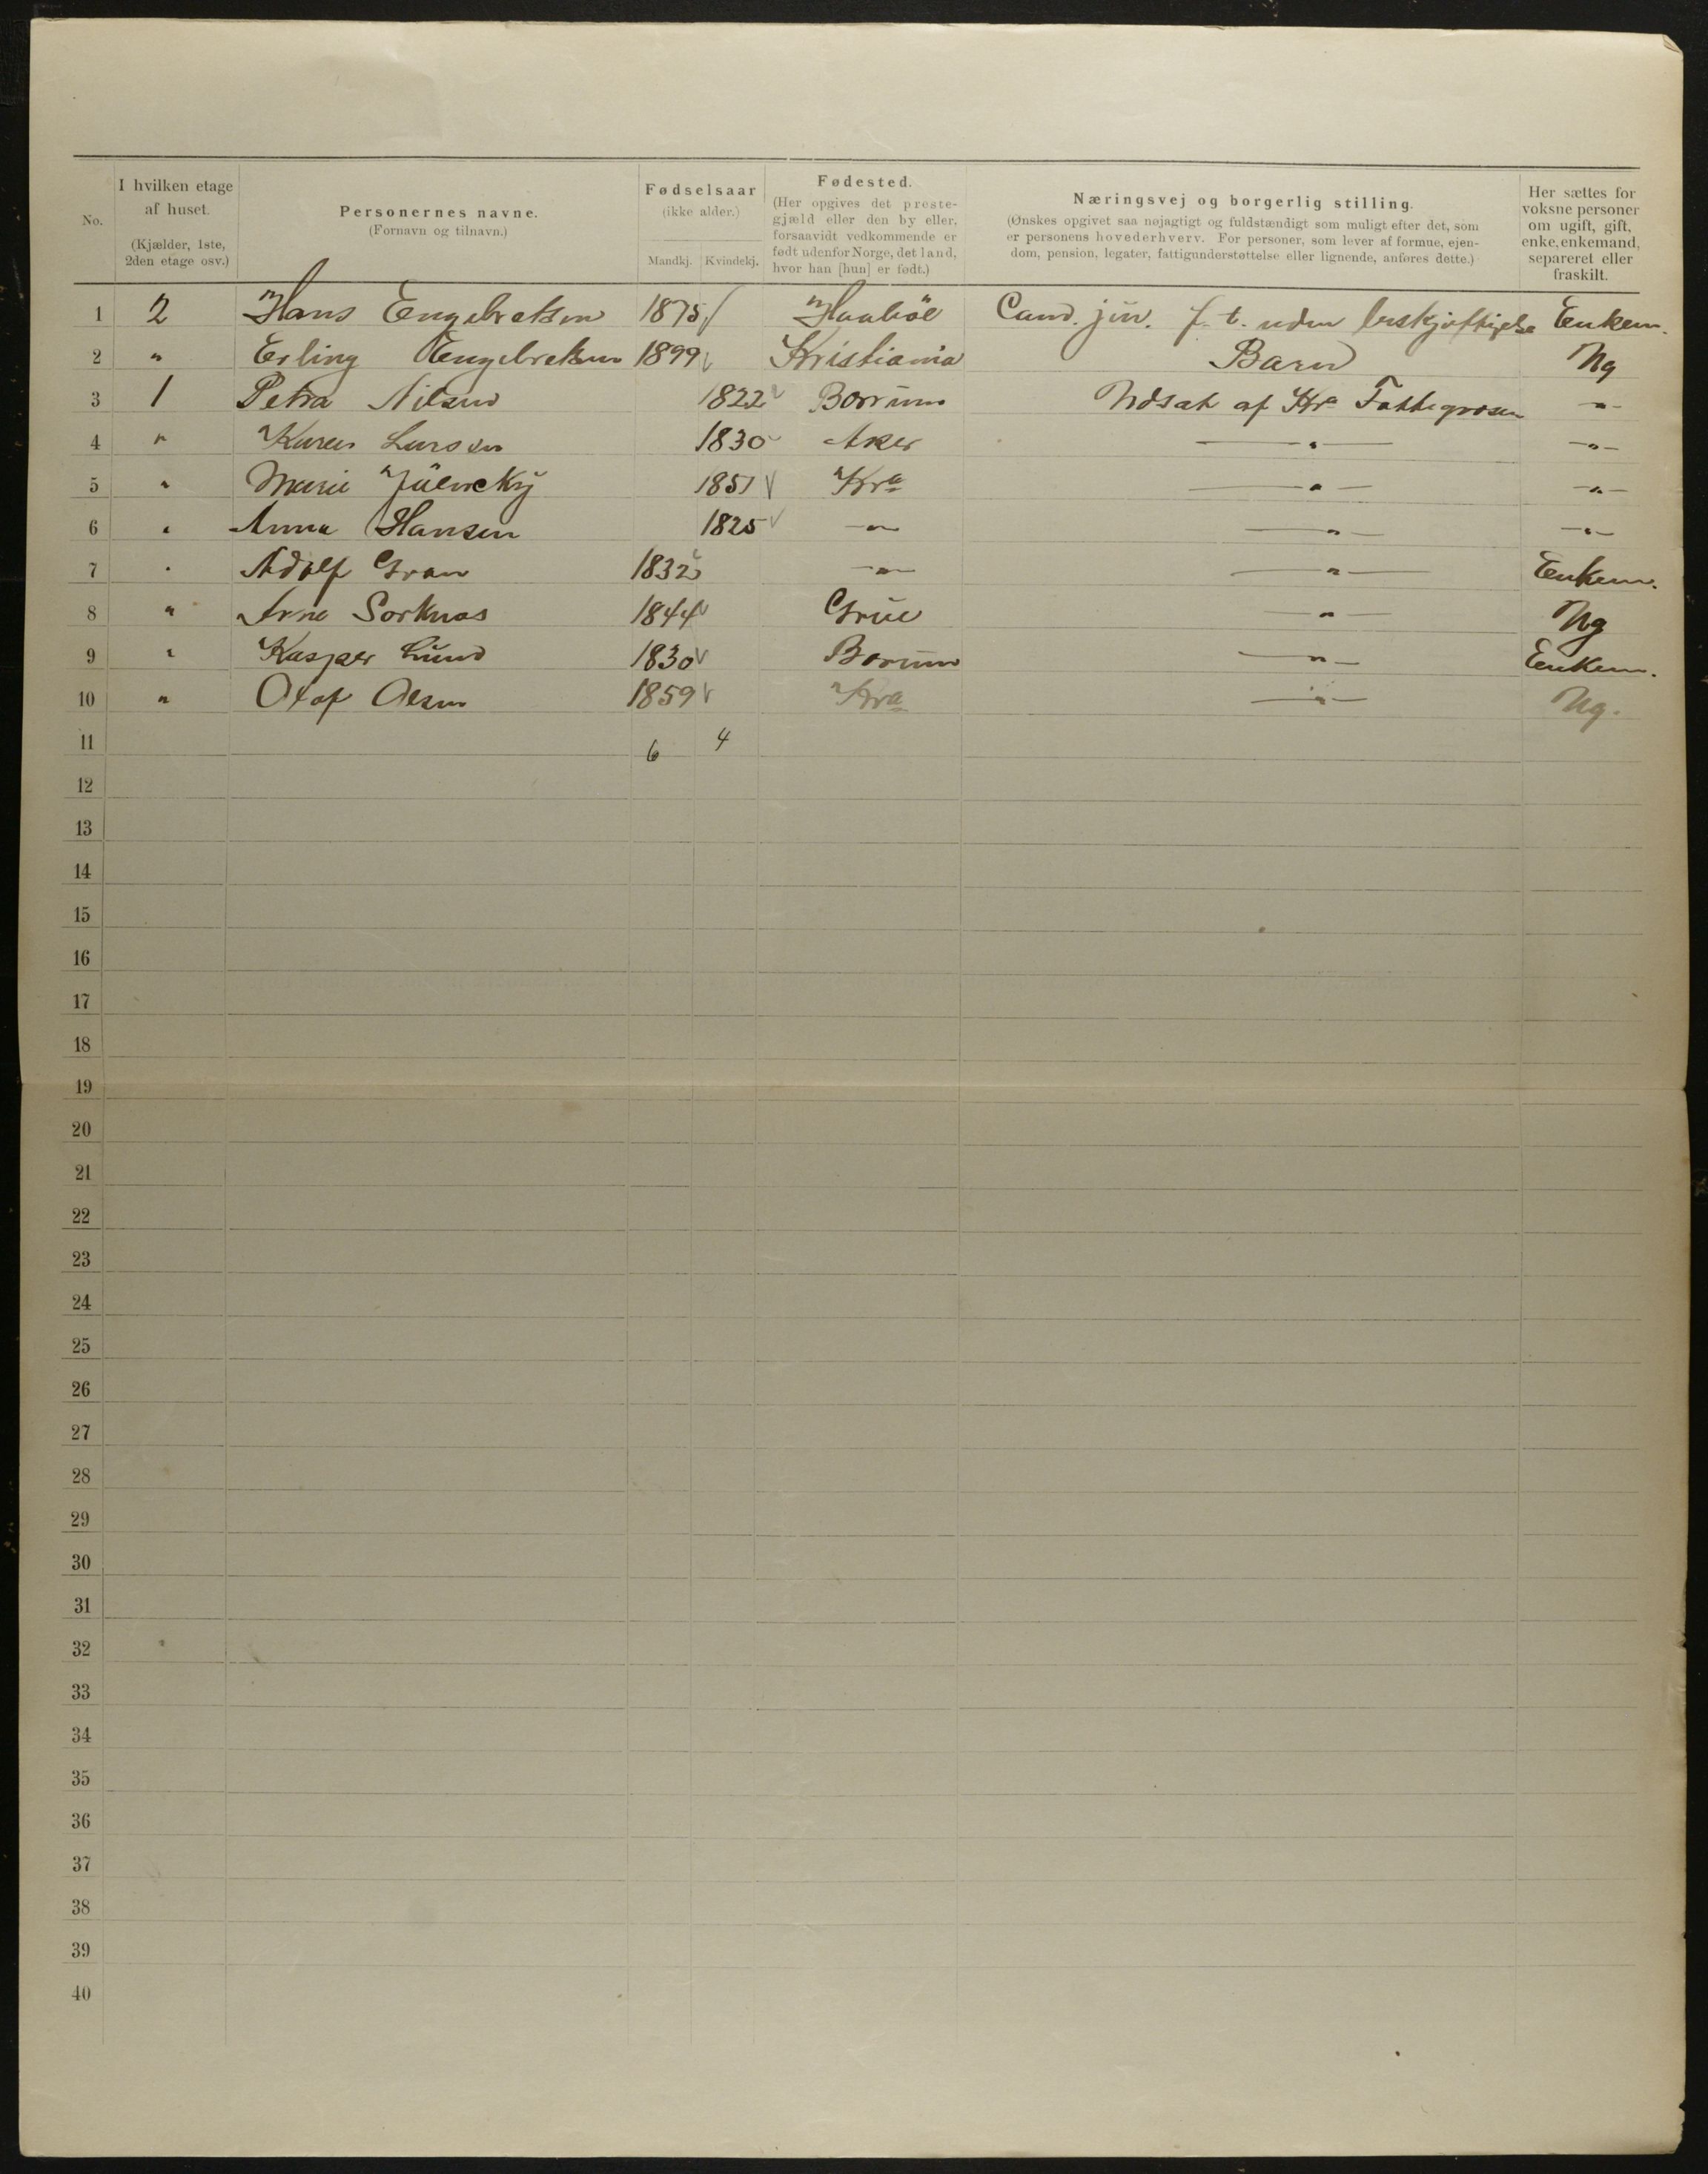 No.
I hvilken etage af huset. (Kjælder, 1ste, 2den etage osv.)
Personernes navne. (Fornavn og tilnavn.)
Fødselsaar (ikke alder.) Mandkj. Kvindekj.
Fødested. (Her opgives det prestegjæld eller den by eller, forsaavidt vedkommende er født udenfor Norge, det land, hvor han [hun] er født.)
Næringsvej og borgerlig stilling. (Ønskes opgivet saa nøjagtigt og fuldstændigt som muligt efter det, som er personens hovederhverv. For personer, som lever af formue, ejendom, pension, legater, fattigunderstøttelse eller lignende, anføres dette.)
Her sættes for voksne personer om ugift, gift, enke, enkemand, separeret eller fraskilt.
1 2 Hans Engebretsen 1875 Haaböl Cand. jur. f. t. uden beskjæftigelse Enkem.
2 " Erling Engebretsen 1899 Kristiania Barn Ug
3 1 Petra Nilsen 1822 Bærum Udsat af Kra Fattigvæsen — " —
4 " Karen Larssen 1830 Aker — " — — " —
5 " Marie 1851 Kra — " — — " —
6 " Anna Hansen 1825 — " — — " — — " —
7 " Adolf Gran 1832 — " — — " — Enkem.
8 " Arne Sorknæs 1844 Grue — " — Ug
9 " Kasper Lund 1830 Bærum — " — Enkem.
10 " Olaf Olsen 1859 Kra — " — Ug.
11 6 4
12
13
14
15
16
17
18
19
20
21
22
23
24
25
26
27
28
29
30
31
32
33
34
35
36
37
38
39
40